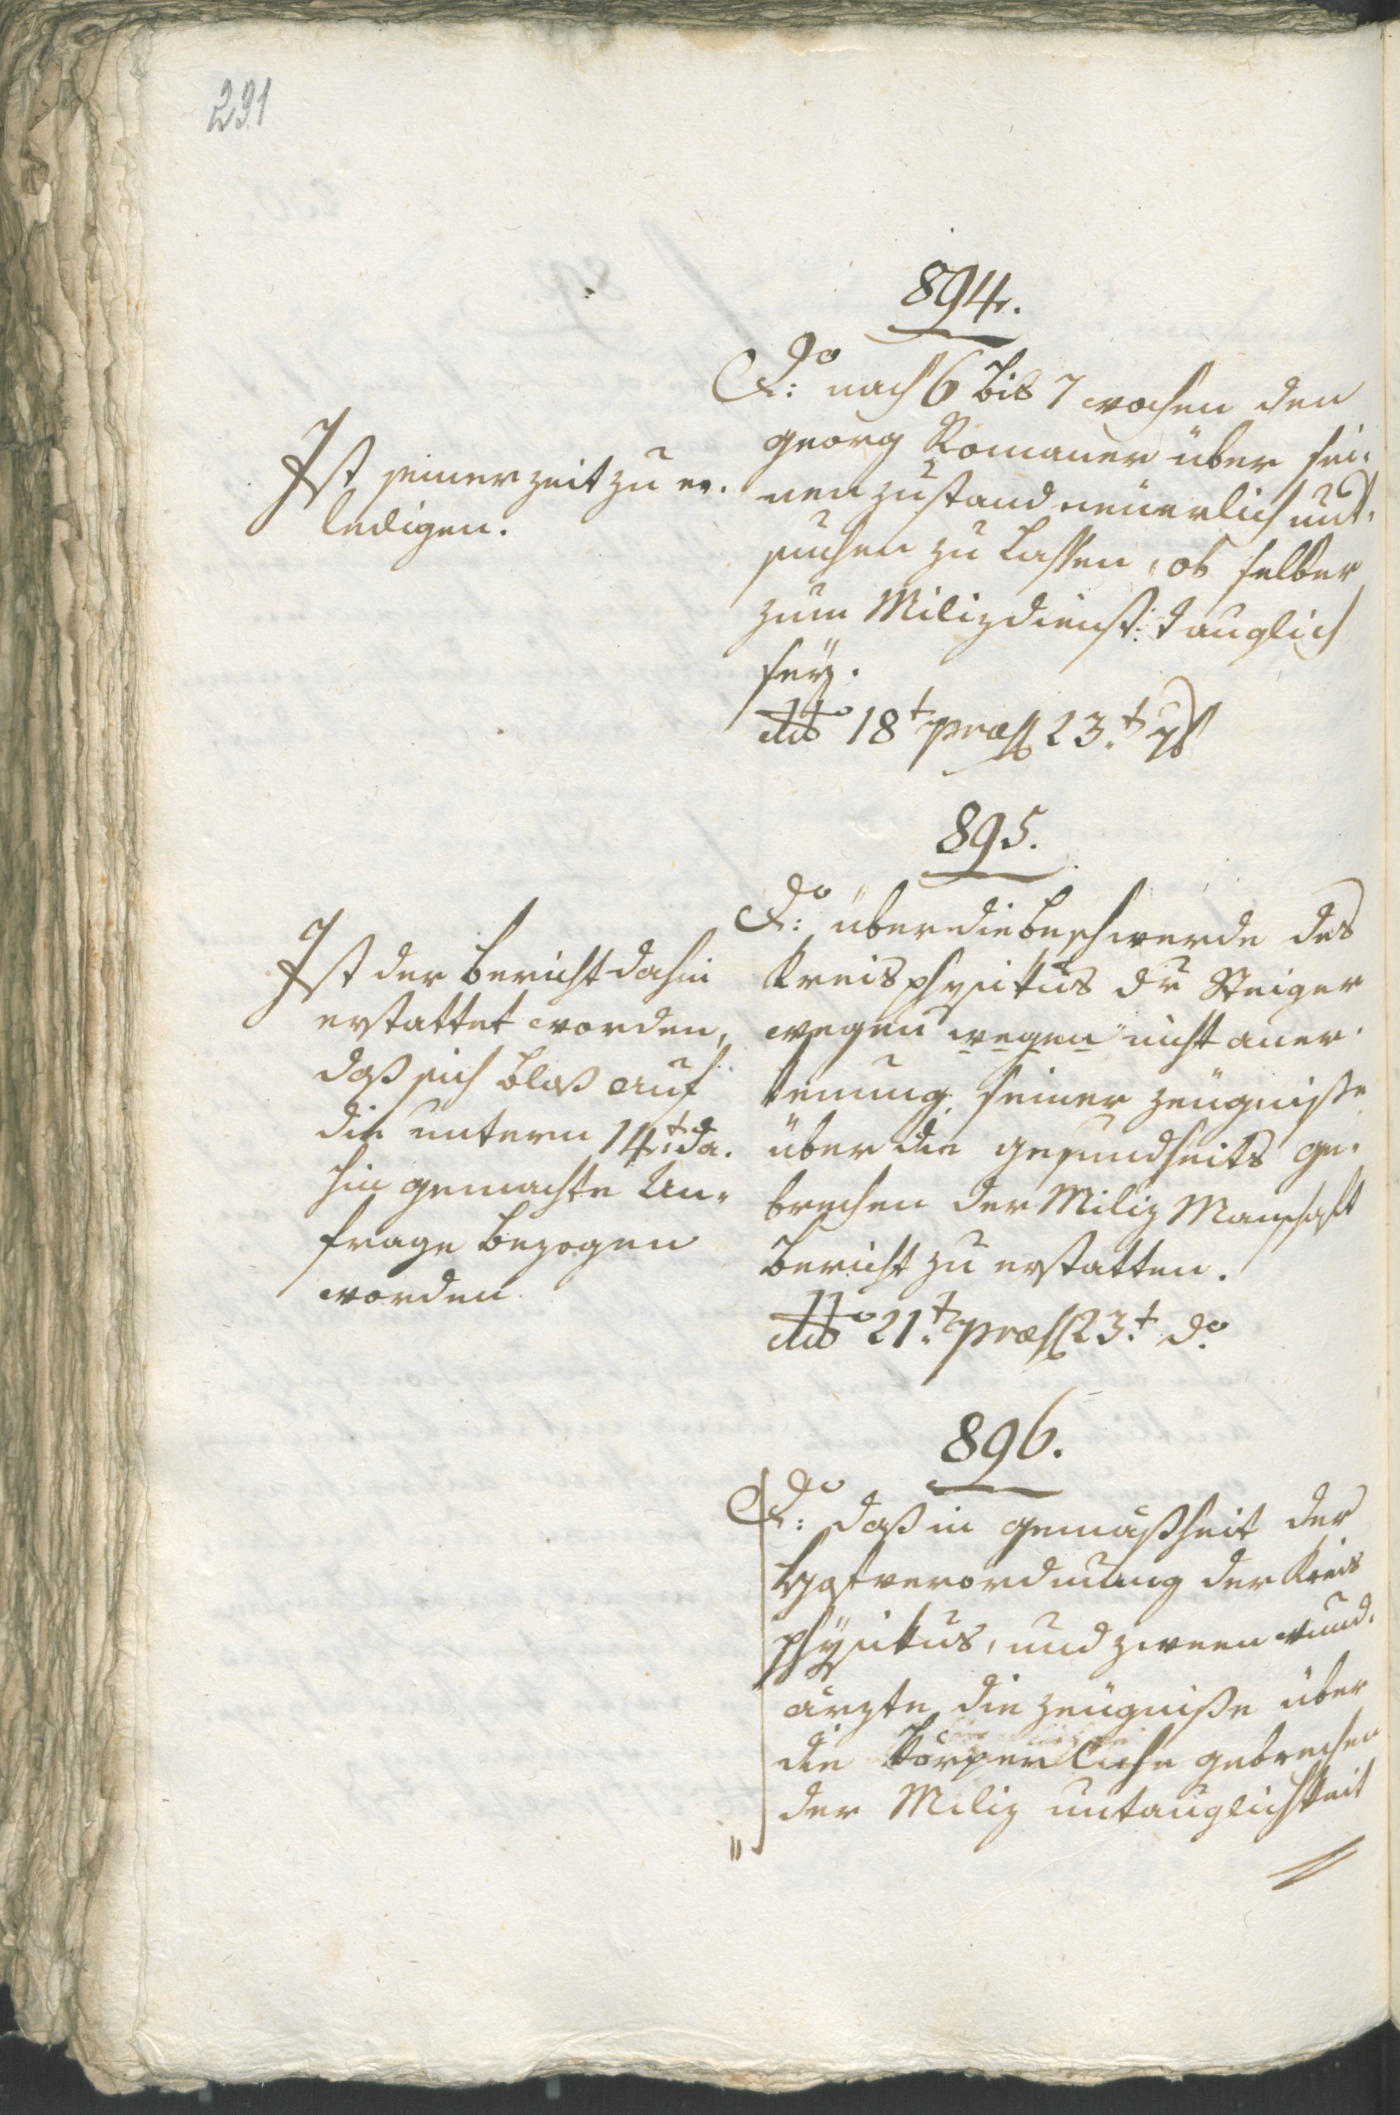 291
894.
Do
K: nach 6 bis 7 wochen den
georg Romauer über sei-
nen zustand neuerlich unt-
suchen zu lassen, ob selber
zum Milizdienst tauglich
seÿ.
dto 18t præs 23.t
Ist seiner zeit zu er-
ledigen.
895.
Do
K: über die beschwerde des
Kreisphysikus Dr Steiger
wegen wegen nicht aner-
kenung seiner zeugniße
über die gesundheits ge-
brechen der Miliz Manschaft
bericht zu erstatten.
dto 21t præs 23.t do
Ist der bericht dahin
erstattet worden,
daß sich bloß auf
die untern 14t da-
hin gemachte An-
frage bezogen
worden.
896.
Do
K: daß in gemäßheit der
Hofverordnung der Kreis
phÿsikus, und zween wund-
ärzte die zeugniße über
die körperliche gebrechen
der Miliz untauglichkeit